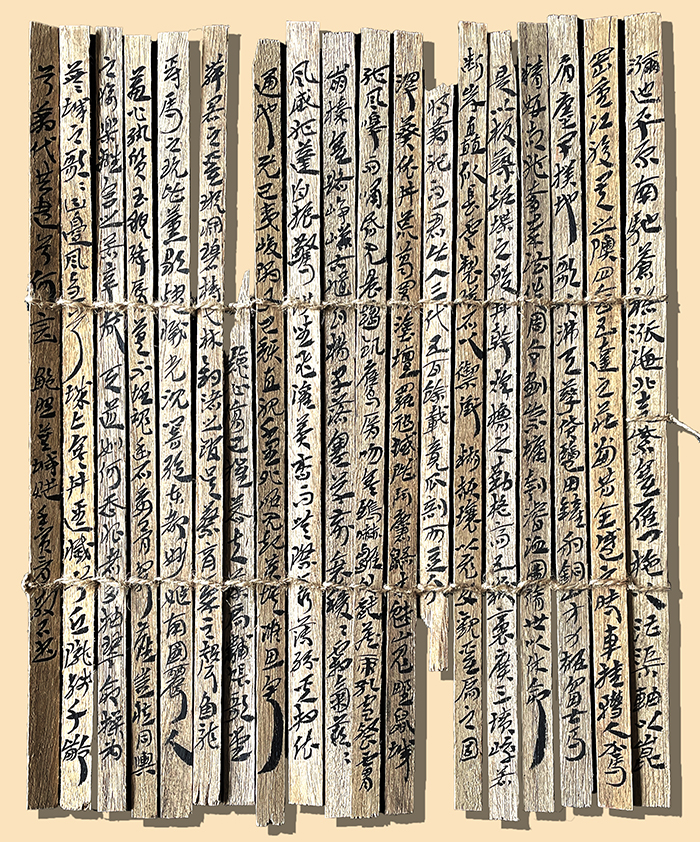 瀰迆平原南馳蒼梧漲海北走紫塞雁門柂以漕渠軸以崑
崗重江複關之隩四會五達之莊當昔全盛之時車挂轊人駕
肩廛閈撲地歌吹沸天孳貨鹽田鏟利銅山才力雄富士馬
精妍故能侈秦法佚周令劃崇墉刳濬洫圖脩世以休命
是以板築雉堞之殷井幹烽櫓之勤格高五嶽袤廣三墳崒若
斷岸矗似長雲製磁石以禦衝糊赬壤以飛文觀基扃之固
將萬祀而一君出入三代五百餘載竟瓜剖而豆分
澤葵依井荒葛罥塗壇羅虺蜮階鬥麏鼯木魅山鬼野鼠城
狐風嗥雨嘯昏見晨趨飢鷹厲吻寒鴟嚇雛伏虣藏虎乳血飡膚
崩榛塞路崢嶸古馗白楊早落塞草前衰稜々霜氣蔌々
風威孤蓬自振驚沙坐飛灌莽杳而無際叢薄紛其相依
通池既已夷峻隅又已頹直視千里外唯見起黃埃凝思寂
聽心傷已摧若夫藻扃黼帳歌堂
舞閣之基璇淵碧樹弋林釣渚之館吳蔡齊秦之聲魚龍
爵馬之玩皆薰歇燼滅光沉響絕東都妙姬南國麗人
蕙心紈質玉貌絳唇莫不埋魂幽石委骨窮塵豈憶同輿
之愉樂離宮之苦辛哉天道如何吞恨者多抽琴命操為
蕪城之歌々曰邊風急兮城上寒井逕滅兮丘隴殘千齡
兮萬代共盡兮何言 鮑照蕪城賦